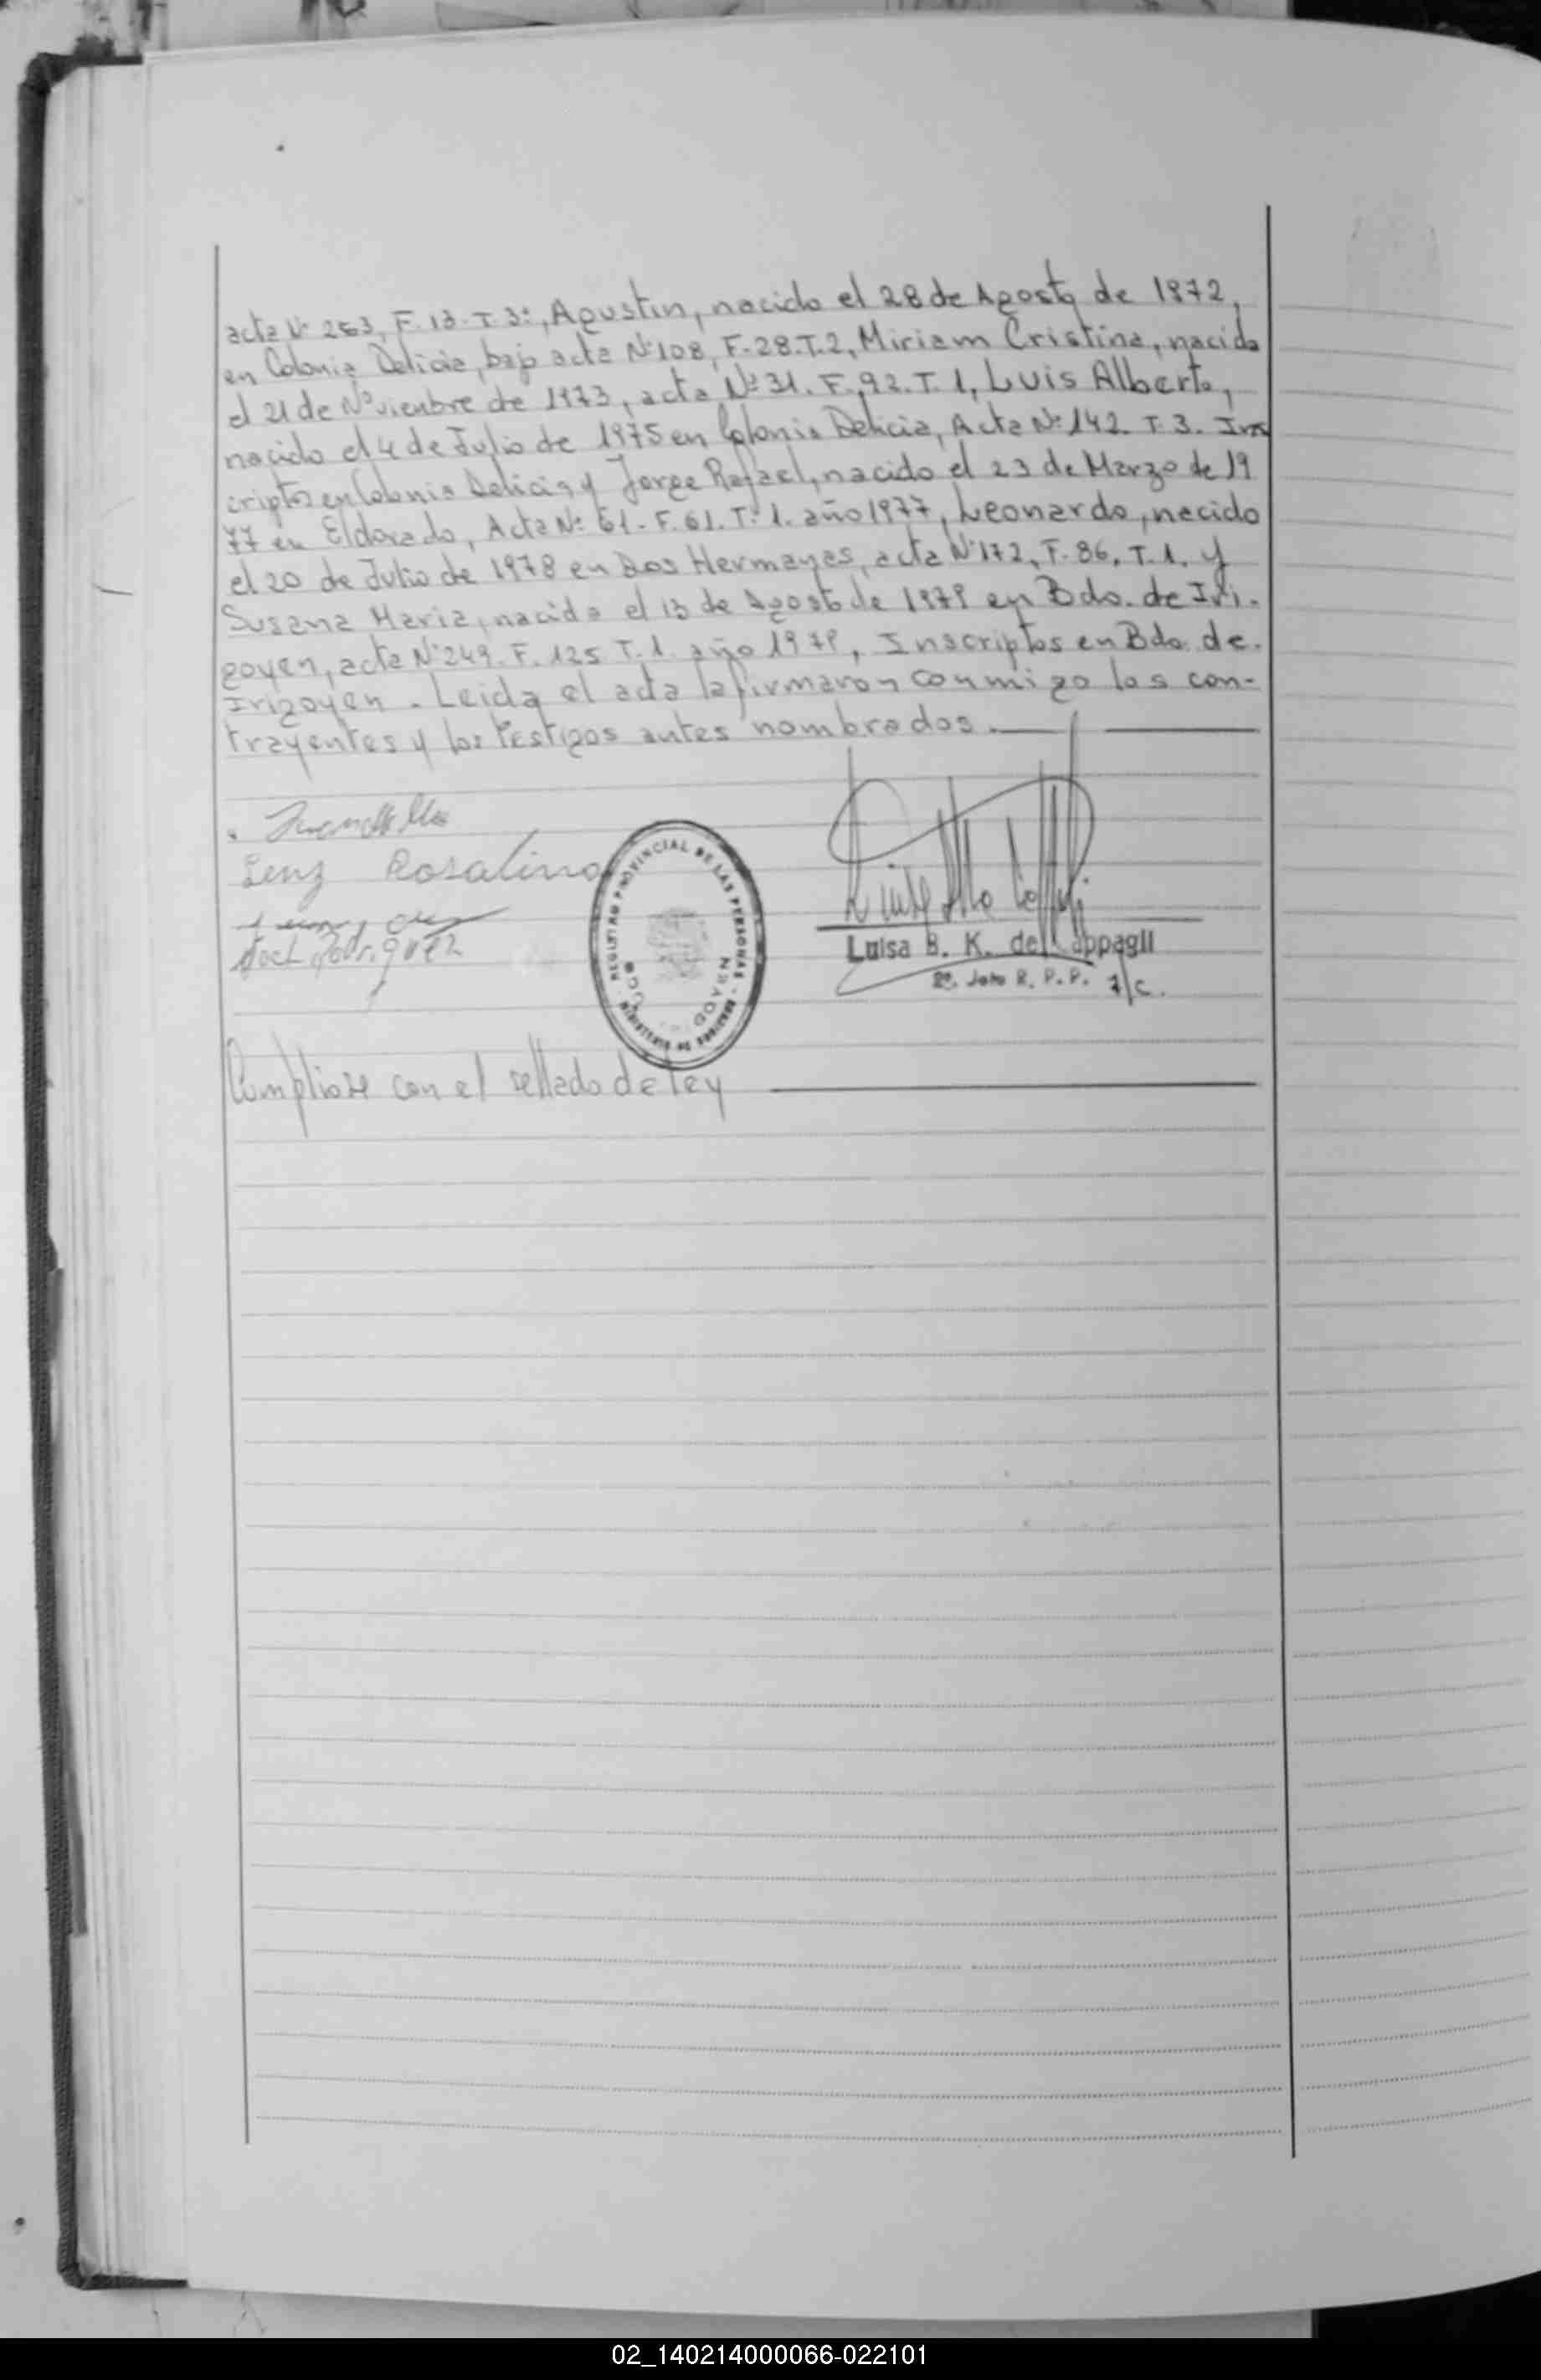 acta Nº 263, F. 13. T. 3º, Agustin, nacido el 28 de Agosto de 1972,
en Colonia Delicia, bajo acta Nº 108, F-28.T.2, Miriam Cristina, nacida
el 21 de Noviembre de 1973, acta Nº 31. F. 92. T. 1, Luis Alberto,
nacido el 4 de Julio de 1975 en Colonia Delicia, Acta Nº 142. T. 3. Ins
criptos en Colonia Delicia y Jorge Rafael, nacido el 23 de Marzo de 19
77 en Eldorado, Acta Nº 61 - F. 61. Tº 1. año 1977, Leonardo, nacido
el 20 de Julio de 1978 en Dos Hermanas, acta Nº 172, F. 86, T. 1. y
Susana Maria, nacida el 13 de Agosto de 1979 en Bdo. de Iri-
goyen, acta Nº 249. F. 125 T. 1. año 1979, Inscriptos en Bdo. de.
Irigoyen. Leida el acta la firmaron conmigo los con-
trayentes y los testigos antes nombrados.
Lenz Rosalino
Rodriguez
REGISTRO PROVINCIAL DE LAS PERSONAS
Luisa B. K. de Cappagli
2º Jefe R. P. P. a/c.
Cumpliose con el sellado de ley
02_140214000066-022101